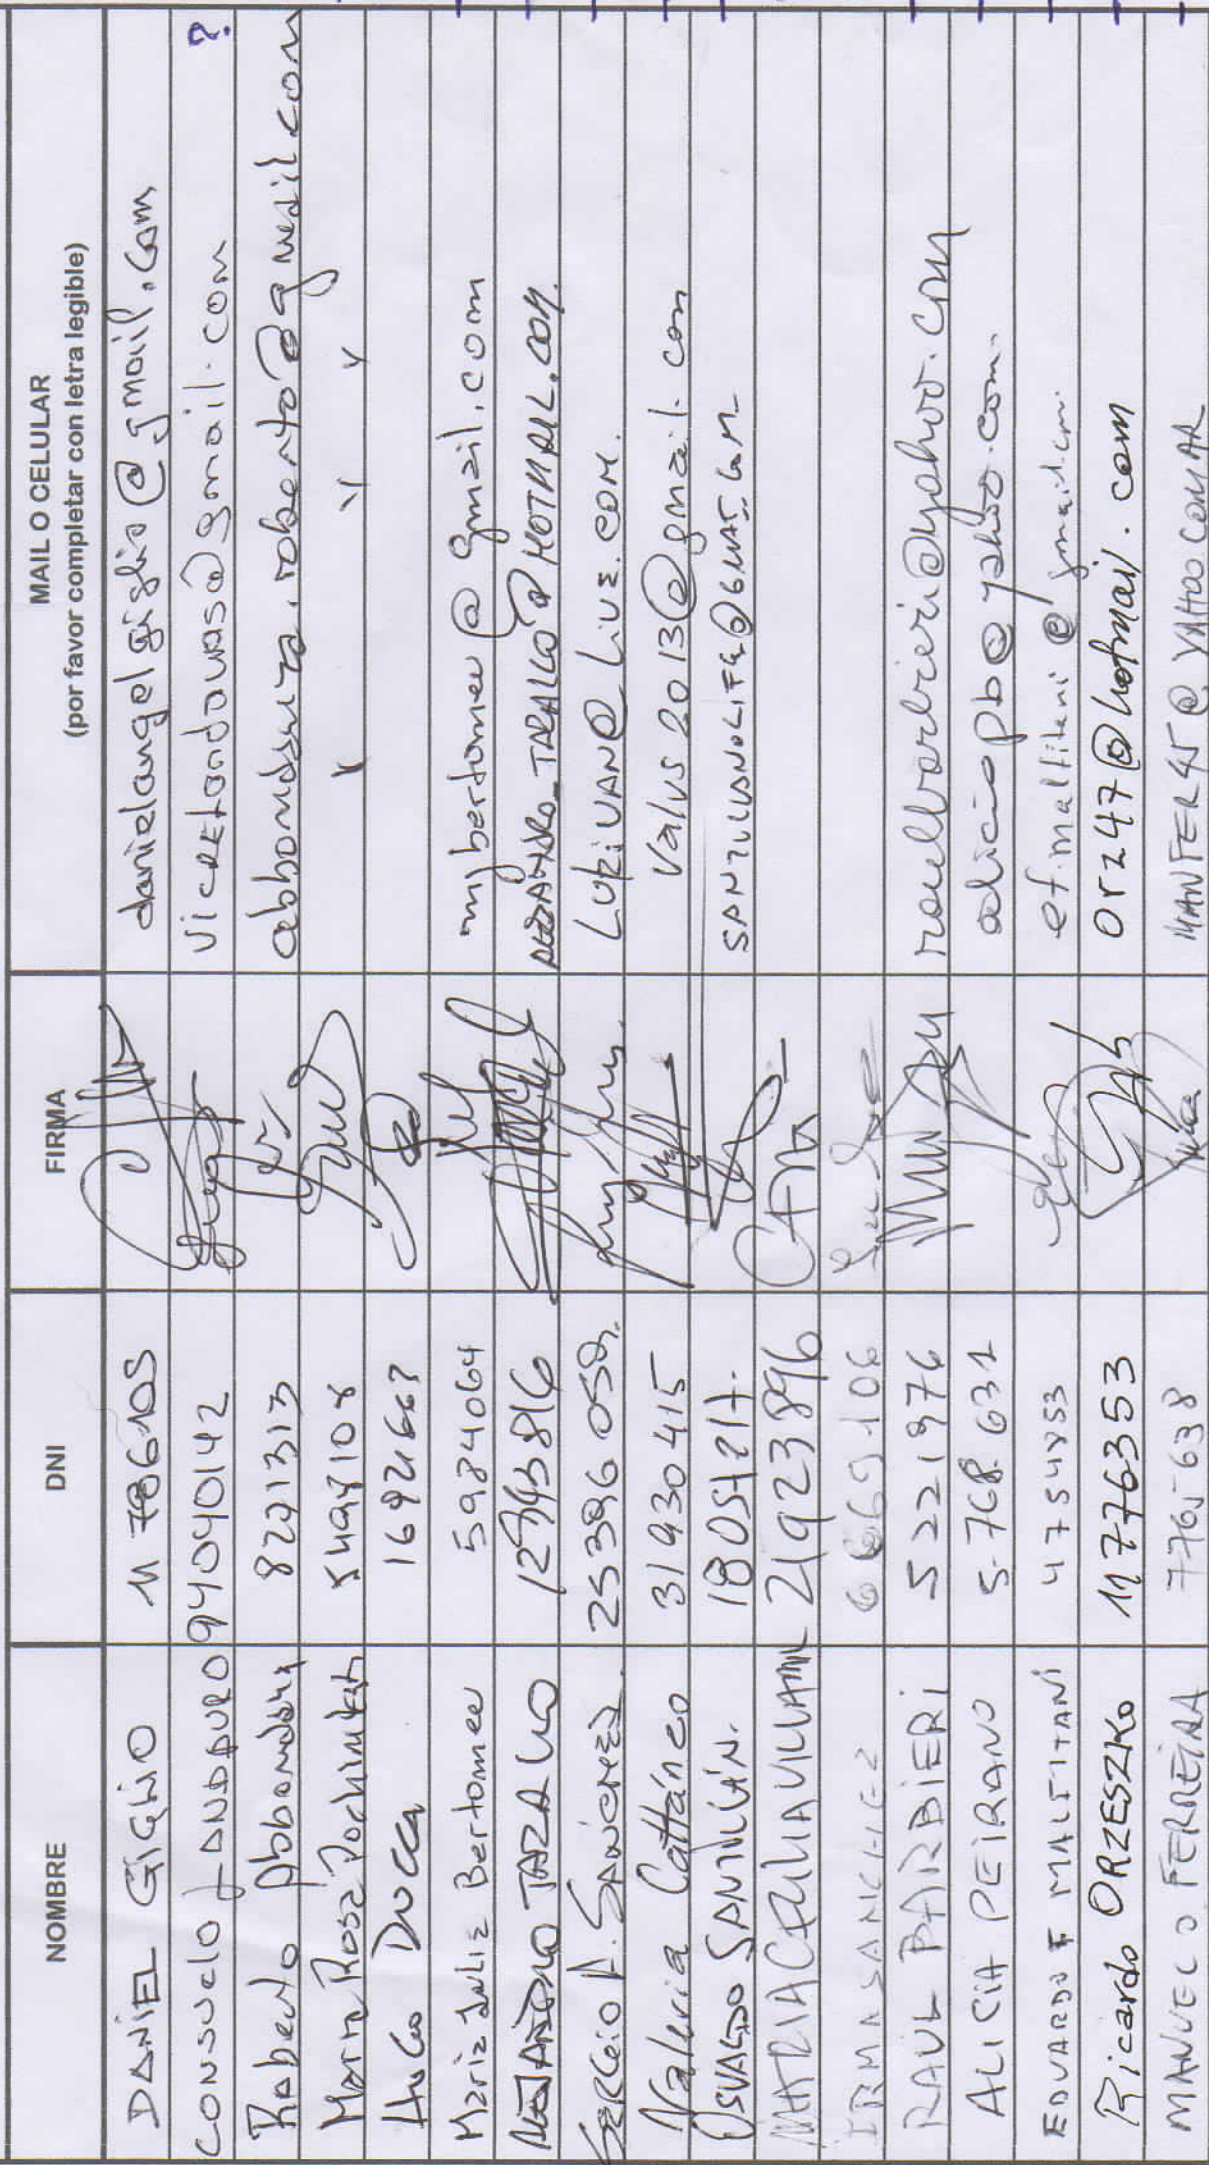 NOMBRE DNI FIRMA MAIL O CELULAR
(por favor completar con letra legible)
DANIEL GIGLIO 11 786 105 danielangelgiglio@gmail.com
CONSUELO LANDAURO 94040142 vicRETandouas@gmail.com ?
Roberto Abbondanza 8221313 abbondanza.roberto@gmail.com
Maria Rosa 5498108
HUGO DUCCA 1692663
Maria Julia Bertomeu 5984064 mjbertomeu@gmail.com
ALEJANDRO TARALLO 12945816 ALEJANDRO_TARALLO@HOTMAIL.COM.
SERGIO A. SANCHEZ. 25396 050 LUKIVAN@LIVE.COM.
Valeria Cattáneo 31930415 Valus2013@gmail.com
OSVALDO SANTILLÁN. 18054217.
MARIA CECILIA VILLAMIL 21923896
IRMA SANCHEZ 6669106
RAUL BARBIERI 5221976 raulbarbieri@yahoo.com
ALICIA PEIRANO 5.768.631 aliciapb@yahoo.com.
EDUARDO F MALTITANI 4754853 ef.maltitani@gmail.com.
Ricardo ORZESZKO 11776353 orz47@hotmail.com
MANUEL O FERREIRA 7765638 MANFER45@YAHOO.COM.AR